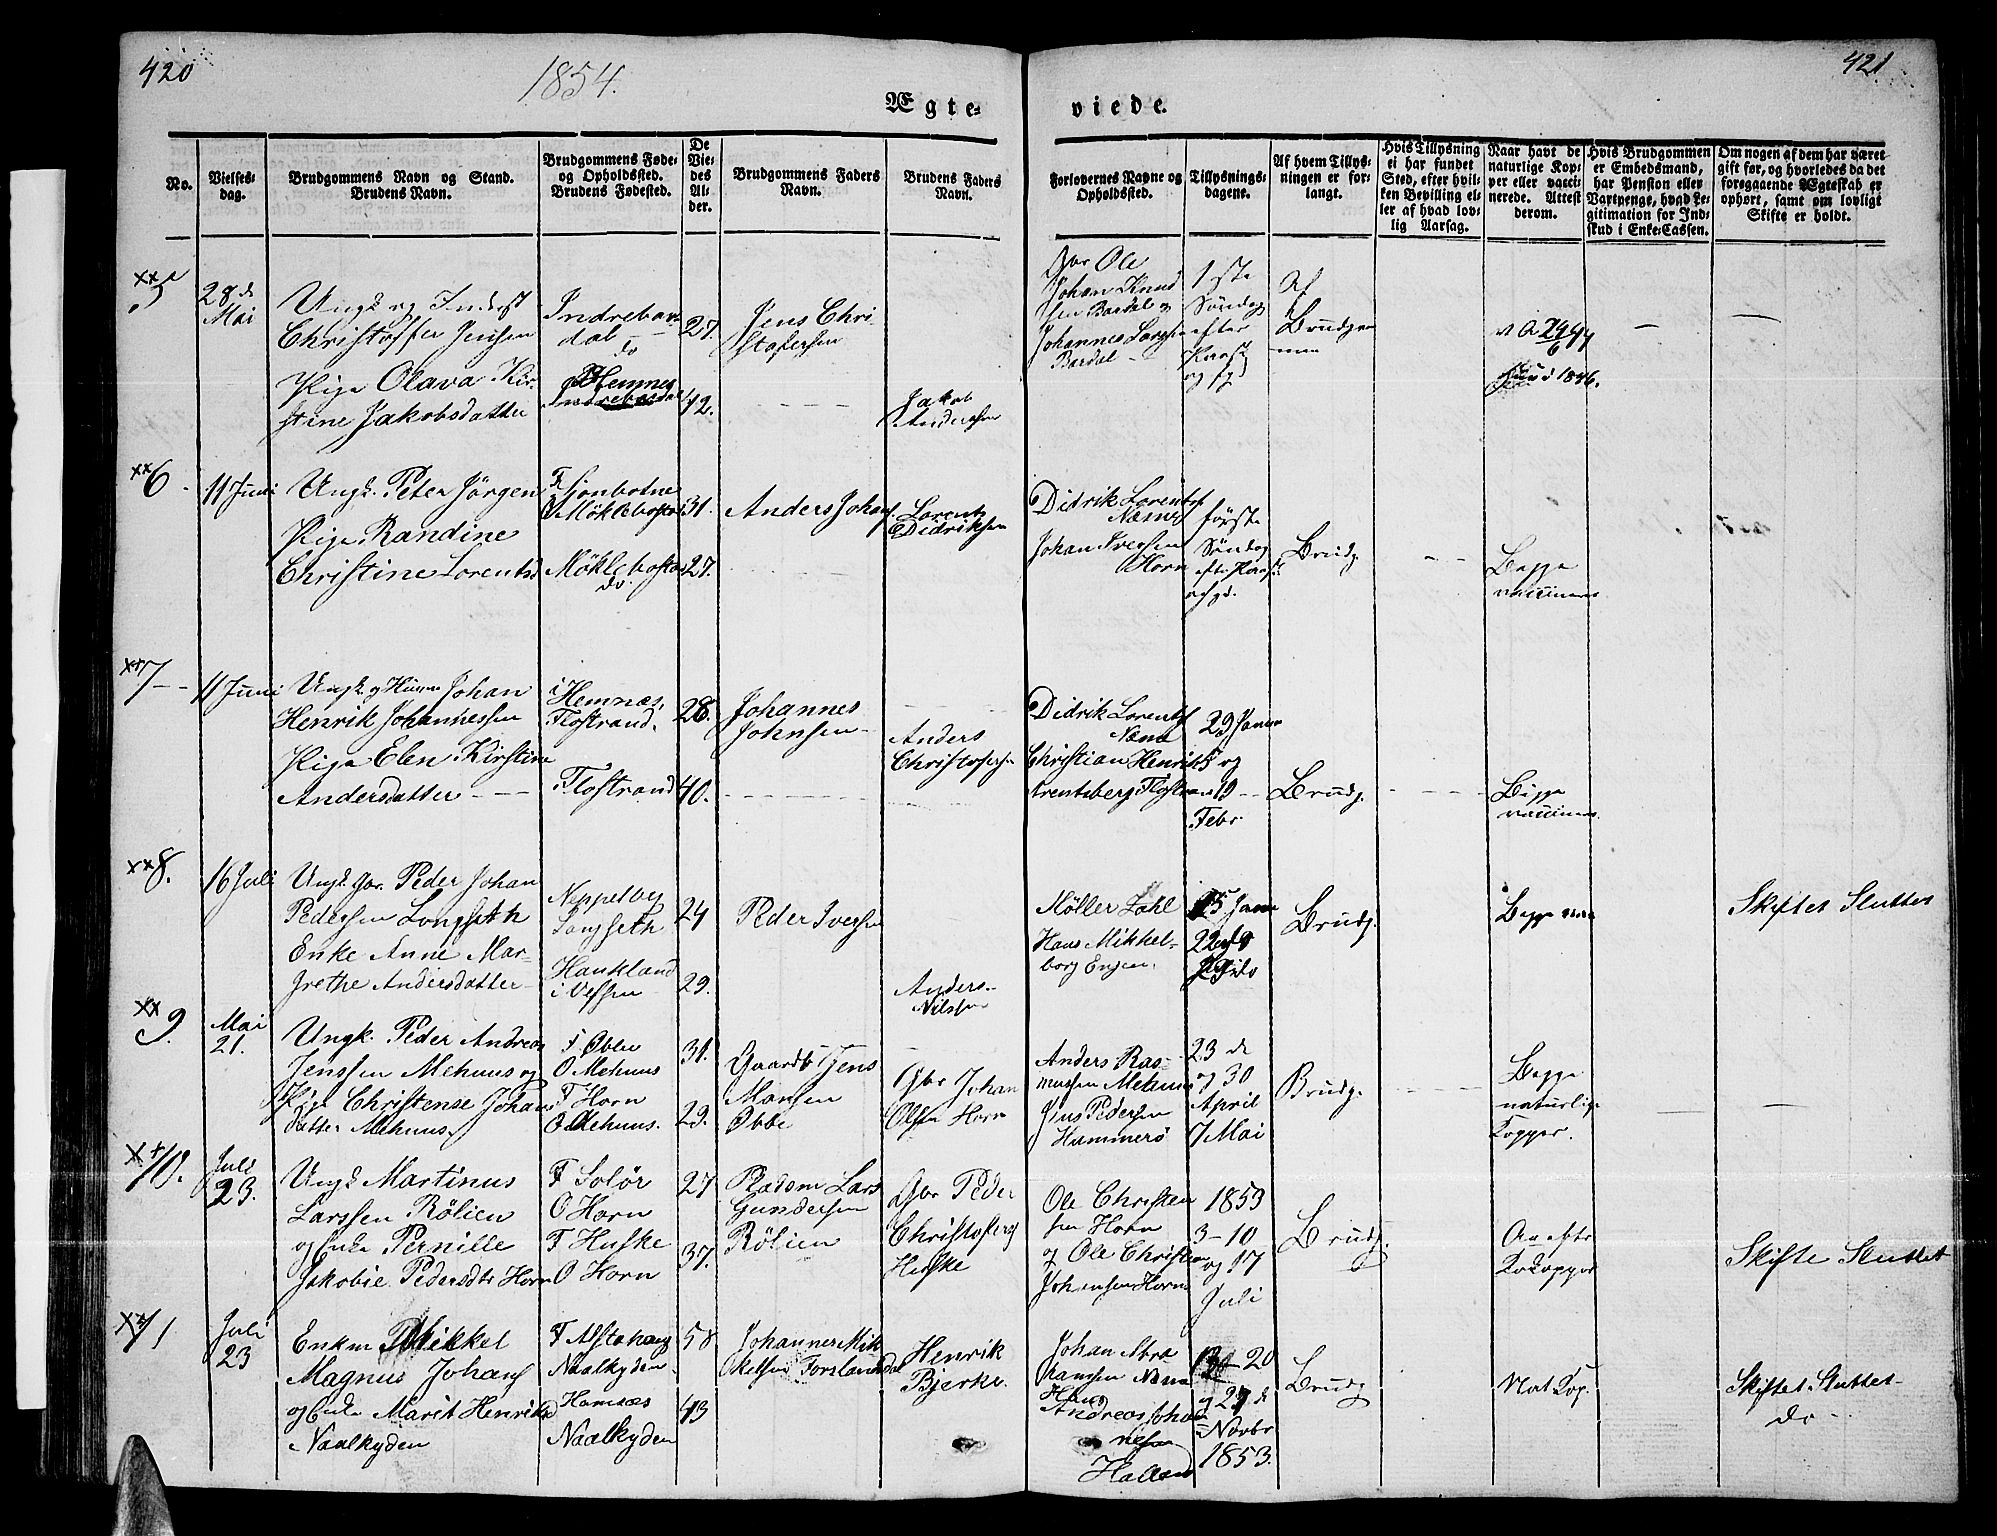 420
1854.
Ægte-
viede.
421
No.
Vielses-
dag.
Brudgommens Navn og Stand.
Brudens Navn.
Brudgommens Føde-
og Opholdssted.
Brudens Fødested.
De
Vie-
des
Al-
der.
Brudgommens Faders
Navn.
Brudens Faders
Navn.
Forlovernes Navne og
Opholdssted.
Tillysnings-
dagene.
Af hvem Tillys-
ningen er for-
langt.
Hvis Tillysning
ei har fundet
Sted, efter hvil-
ken Bevilling el-
ler af hvad lov-
lig Aarsag.
Naar havt de
naturlige Kop-
per eller vacci-
nerede. Attest
derom.
Hvis Brudgommen
er Embedsmand,
har Pension eller
Vartpenge, hvad Le-
gitimation for Ind-
skud i Enke-Cassen.
Om nogen af dem har været
gift før, og hvorledes da det
foregaaende Ægteskab er
ophørt, samt om lovligt
Skifte er holdt.
xx5
28de
Mai
Ungk og Inderst
Christoffer Jensen
Pige Olava Kir-
stine Jakobsdatter
Indrebar
dal
do
Hemnes
27.
42.
Jens Chri-
stofersen
Jakob
Andersen
Gbr Ole
Johan Knud
sen Bardal og
Johannes Larsen
Bardal
1ste
Søndag
efter
og
Af
Brudgom
men
1846.
xx6
11 Juni
Ungk. Peter Jörgen
Pige Randine
Christine Lorentsd
F Sjonbotne
O Möklebosta
Möklebosta
do
31.
27.
Anders Johans
Lorents
Didriksen
Didrik Lorents
Næsne
Johan Iversen
Horn
förste
Søndag
Brudg.
Begge
vaccineres
xx7
11 Juni
Ungk og Huusm Johan
Henrik Johannessen
Pige Elen Kirstine
Andersdatter
i Hemnæs
Flostrand.
Flostrand
28.
40.
Johannes
Johnsen
Anders
Christofersen
Didrik Lorents
Næsne
Christian Henrik
Flostran
29 Janu
5 og
19
Febr.
Brudg.
Begge
vaccineres
xx8.
16 Juli
Ungk. Gbr. Peder Johan
Pedersen Langseth
Enke Anne Mar-
grethe Andersdatter
Langseth
Haukland
i Vefsen
24
29.
Peder Iversen
Anders
Nilsen
Møller Dahl
Hans Mikkel-
borg Engen.
15 Janu
22
Brudg.
Begge
Skiftet Sluttet
xx9.
Mai
21.
Ungk. Peder Andreas
Jenssen Mehuus og
Pige Christense Johans
datter Mehuus.
F Øbbe
O Mehuus
F Horn
O Mehuus.
31.
29.
Gaardb Jens
Monsen
Øbbe
Gbr Johan
Olsen Horn
Anders Ras-
mussen Mehuus
Jens Pedersen
Hammerö
23de
og 30
April
7 Mai
Brudg.
Begge
naturlige
Kopper.
xx10.
Juli
23.
Ungk Martinus
Larssen Rölien
og Enke Pernille
Jakobie Pedersdtr Horn
F Solör
O Horn
F Huske
O Horn
27
37.
Lars
Gundersen
Rölien
Gbr Peder
Christofers
Huske
Ole Christen
sen Horn
og Ole Christian
Johansen Horn
1853
3-10
og 17
Juli
Brudg.
Skifte Sluttet
xx11
Juli
23
Enkm Mikkel
Magnus Johans
og Enke Marit Henriksd
Naalkyden
F Alstahaug
Naalkyden
Hemnæs
Naalkyden
58
43
Johannes Mik
kelsen Forslandsdal
Henrik
Bjerke.
Johan Abra
hamsen Næsna
Hans
Andreas Johan
nesen
Halland
13-20
og 27de
Novbr
1853.
Brudg
Nat Kop.
Skiftet Sluttet
do